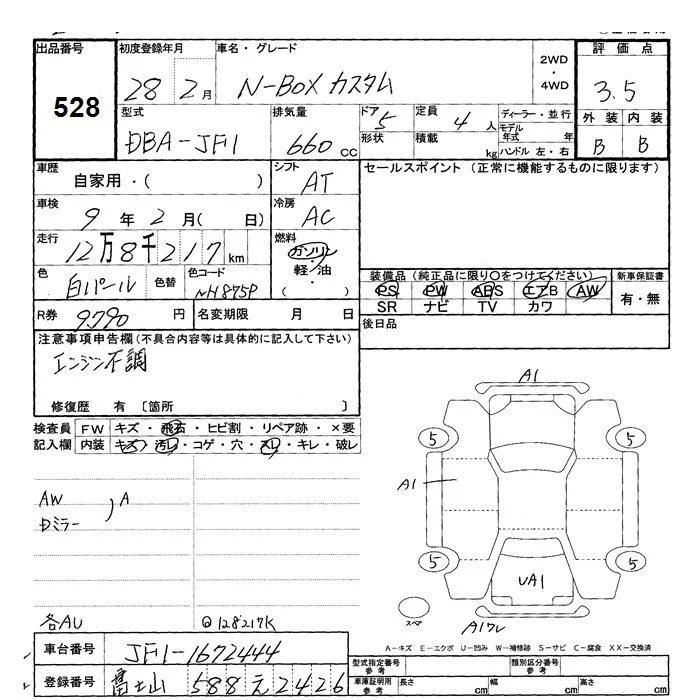 出品番号 初度登録年月 車名・グレード 2WD・4WD 評価点
528 28 2月 N-BOX カスタム 3.5
型式 排気量 ドア 5 定員 4人 ディーラー・並行 外装 内装
DBA-JF1 660cc 形状 積載 kg モデル年式 年 ハンドル 左・右 B B
車歴 シフト セールスポイント (正常に機能するものに限ります)
自家用・( ) AT
車検 冷房
9年 2月( 日) AC
走行 燃料
12万8千217km ガソリン・軽・油・( )
色 色替 色コード 装備品 (純正品に限り○をつけてください) 新車保証書
白パール NH875P PS PW ABS エアB AW 有・無
SR ナビ TV カワ
R券 9790円 名変期限 月 日 後日品
注意事項申告欄(不具合内容等は具体的に記入して下さい)
エンジン不調
修復歴 有 〔箇所 〕
検査員記入欄 FW キズ・飛石・ヒビ割・リペア跡・×要
内装 キズ・汚レ・コゲ・穴・スレ・キレ・破レ
A1
5 5
AW
Dミラー
A
A1
5 5
UA1
スペア
A1ワレ
各AU @128217K
A-キズ E-エクボ U-凹み W-補修跡 S-サビ C-腐食 XX-交換済
車台番号 JF1-1672444
型式指定番号 参考 類別区分番号 参考
登録番号 富士山 588 え 2426
車庫証明用 参考 長さ cm 幅 cm 高さ cm